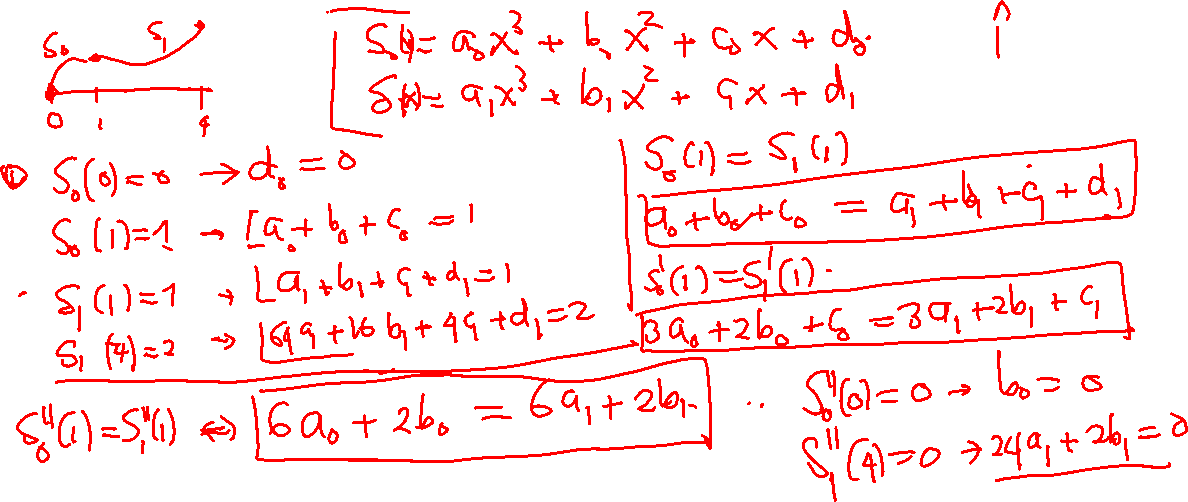 S₀ S₁
0 1 4
S₀(x) = a₀x³ + b₀x² + c₀x + d₀.
S₁(x) = a₁x³ + b₁x² + c₁x + d₁
① S₀(0) = 0 → d₀ = 0
S₀(1) = 1 → a₀ + b₀ + c₀ = 1
S₁(1) = 1 → a₁ + b₁ + c₁ + d₁ = 1
S₁(4) = 2 → 64a₁ + 16b₁ + 4c₁ + d₁ = 2
S₀(1) = S₁(1)
a₀ + b₀ + c₀ = a₁ + b₁ + c₁ + d₁
S₀'(1) = S₁'(1).
3a₀ + 2b₀ + c₀ = 3a₁ + 2b₁ + c₁
S₀''(1) = S₁''(1) ⇔ 6a₀ + 2b₀ = 6a₁ + 2b₁.
S₀''(0) = 0 → b₀ = 0
S₁''(4) = 0 → 24a₁ + 2b₁ = 0